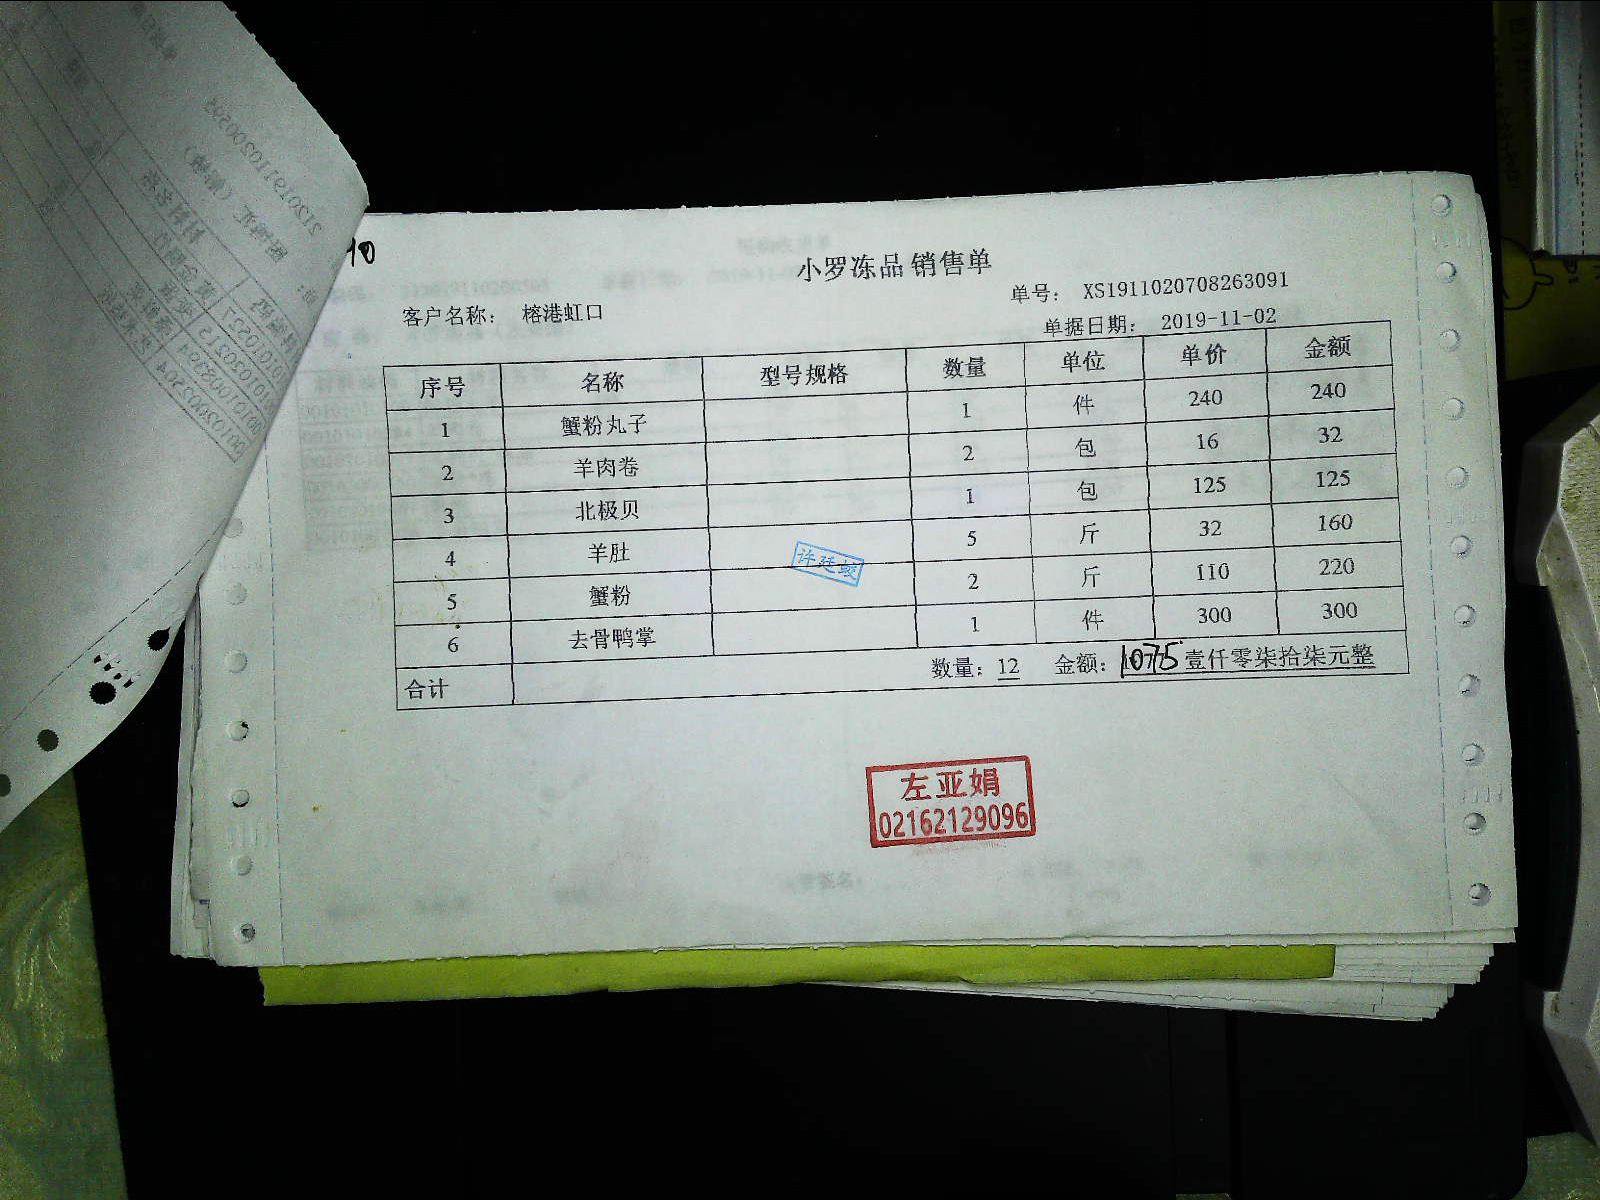 小罗冻品 销售单
单号： XS1911020708263091
客户名称： 榕港虹口
单据日期： 2019-11-02
序号 名称 型号规格 数量 单位 单价 金额
1 蟹粉丸子 1 件 240 240
2 羊肉卷 2 包 16 32
3 北极贝 1 包 125 125
4 羊肚 5 斤 32 160
5 蟹粉 2 斤 110 220
6 去骨鸭掌 1 件 300 300
许廷蛟
合计 数量：12 金额：1075 壹仟零柒拾柒元整
左亚娟
02162129096